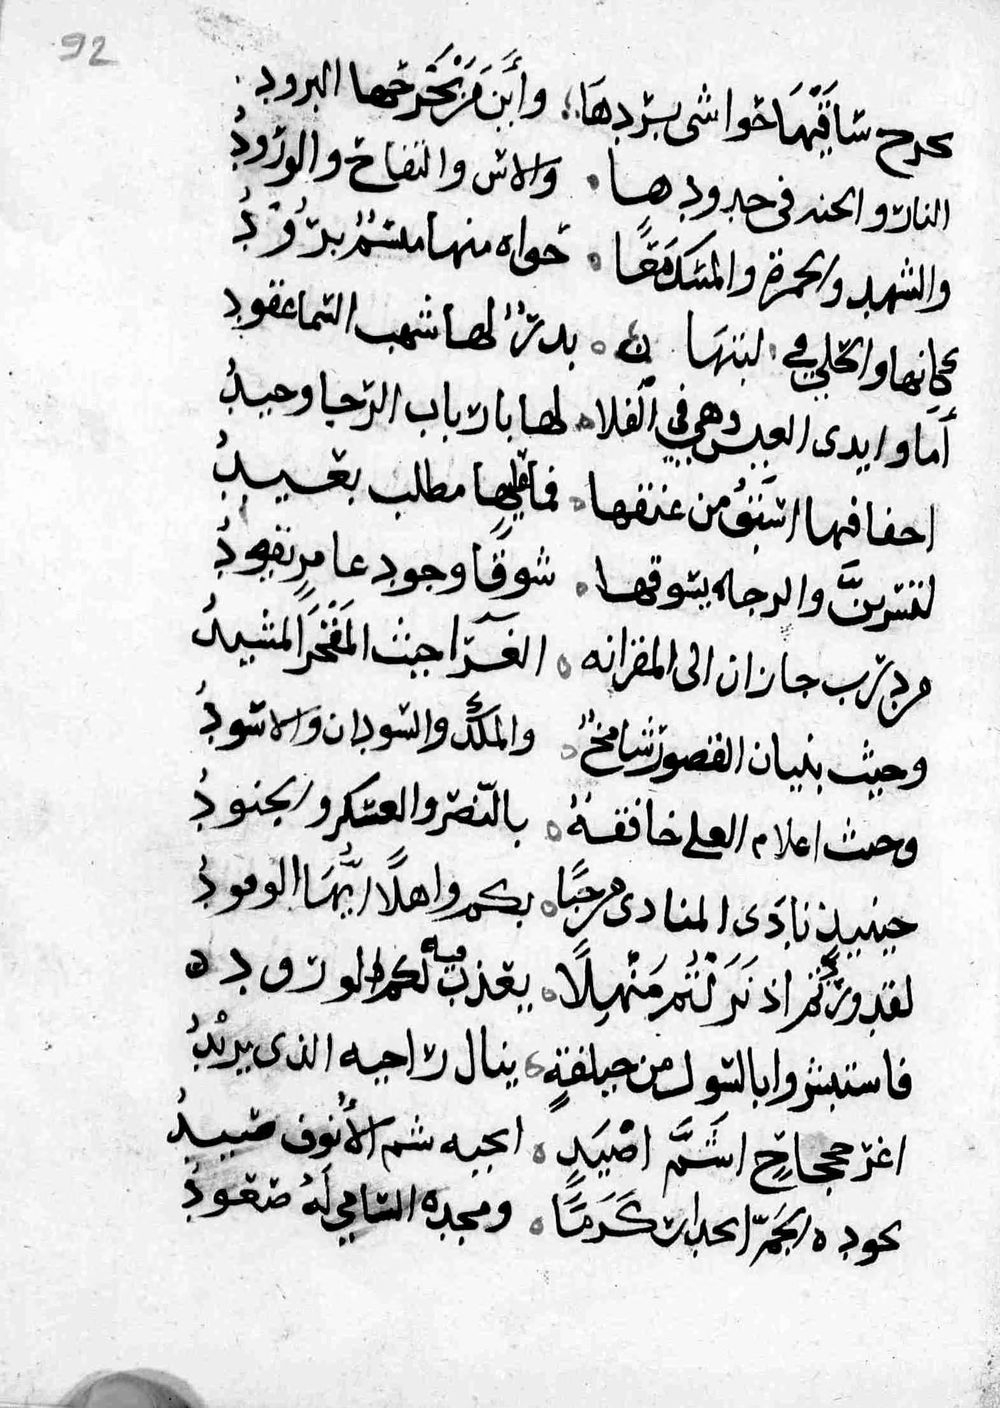 92
يجرح ساقيها حواشي بردها وأين من تجرحها البرود
النار والجنه في خدودها والاس والتفاح والورود
والشهد والخمرة والمسك معًا حواه منها مبسم برود
كانها والحلي في لبتها بدر لها شهب السما عقود
أما وايدي العيس وهي في الفلا لها بارباب الرجا وخيد
احفافها من عنقها فما مطلب بعيد
والدجا يشوقها شوقًا وجود عامر
من درب جازان الى المقرانه الغرا حيث المفخر المشيد
وحيث بنيان القصور شامخ والملك والسودان والاسود
وحيث اعلام العلى خافقة بالنصر والعسكر والجنود
حينيذ نادى المنادي مرحبًا بكم واهلًا ايها الوفود
لقد وردتم اذ نزلتم منهلًا يعذب فيه لكم الورود
فاستبشروا بالسول من خليفةٍ ينال راجيه الذي يريد
اغر جحجاح اشم اصيد انجبه شم الأنوف صيد
بجوده الجم انحدار كرمًا ومجده السامي له صعود